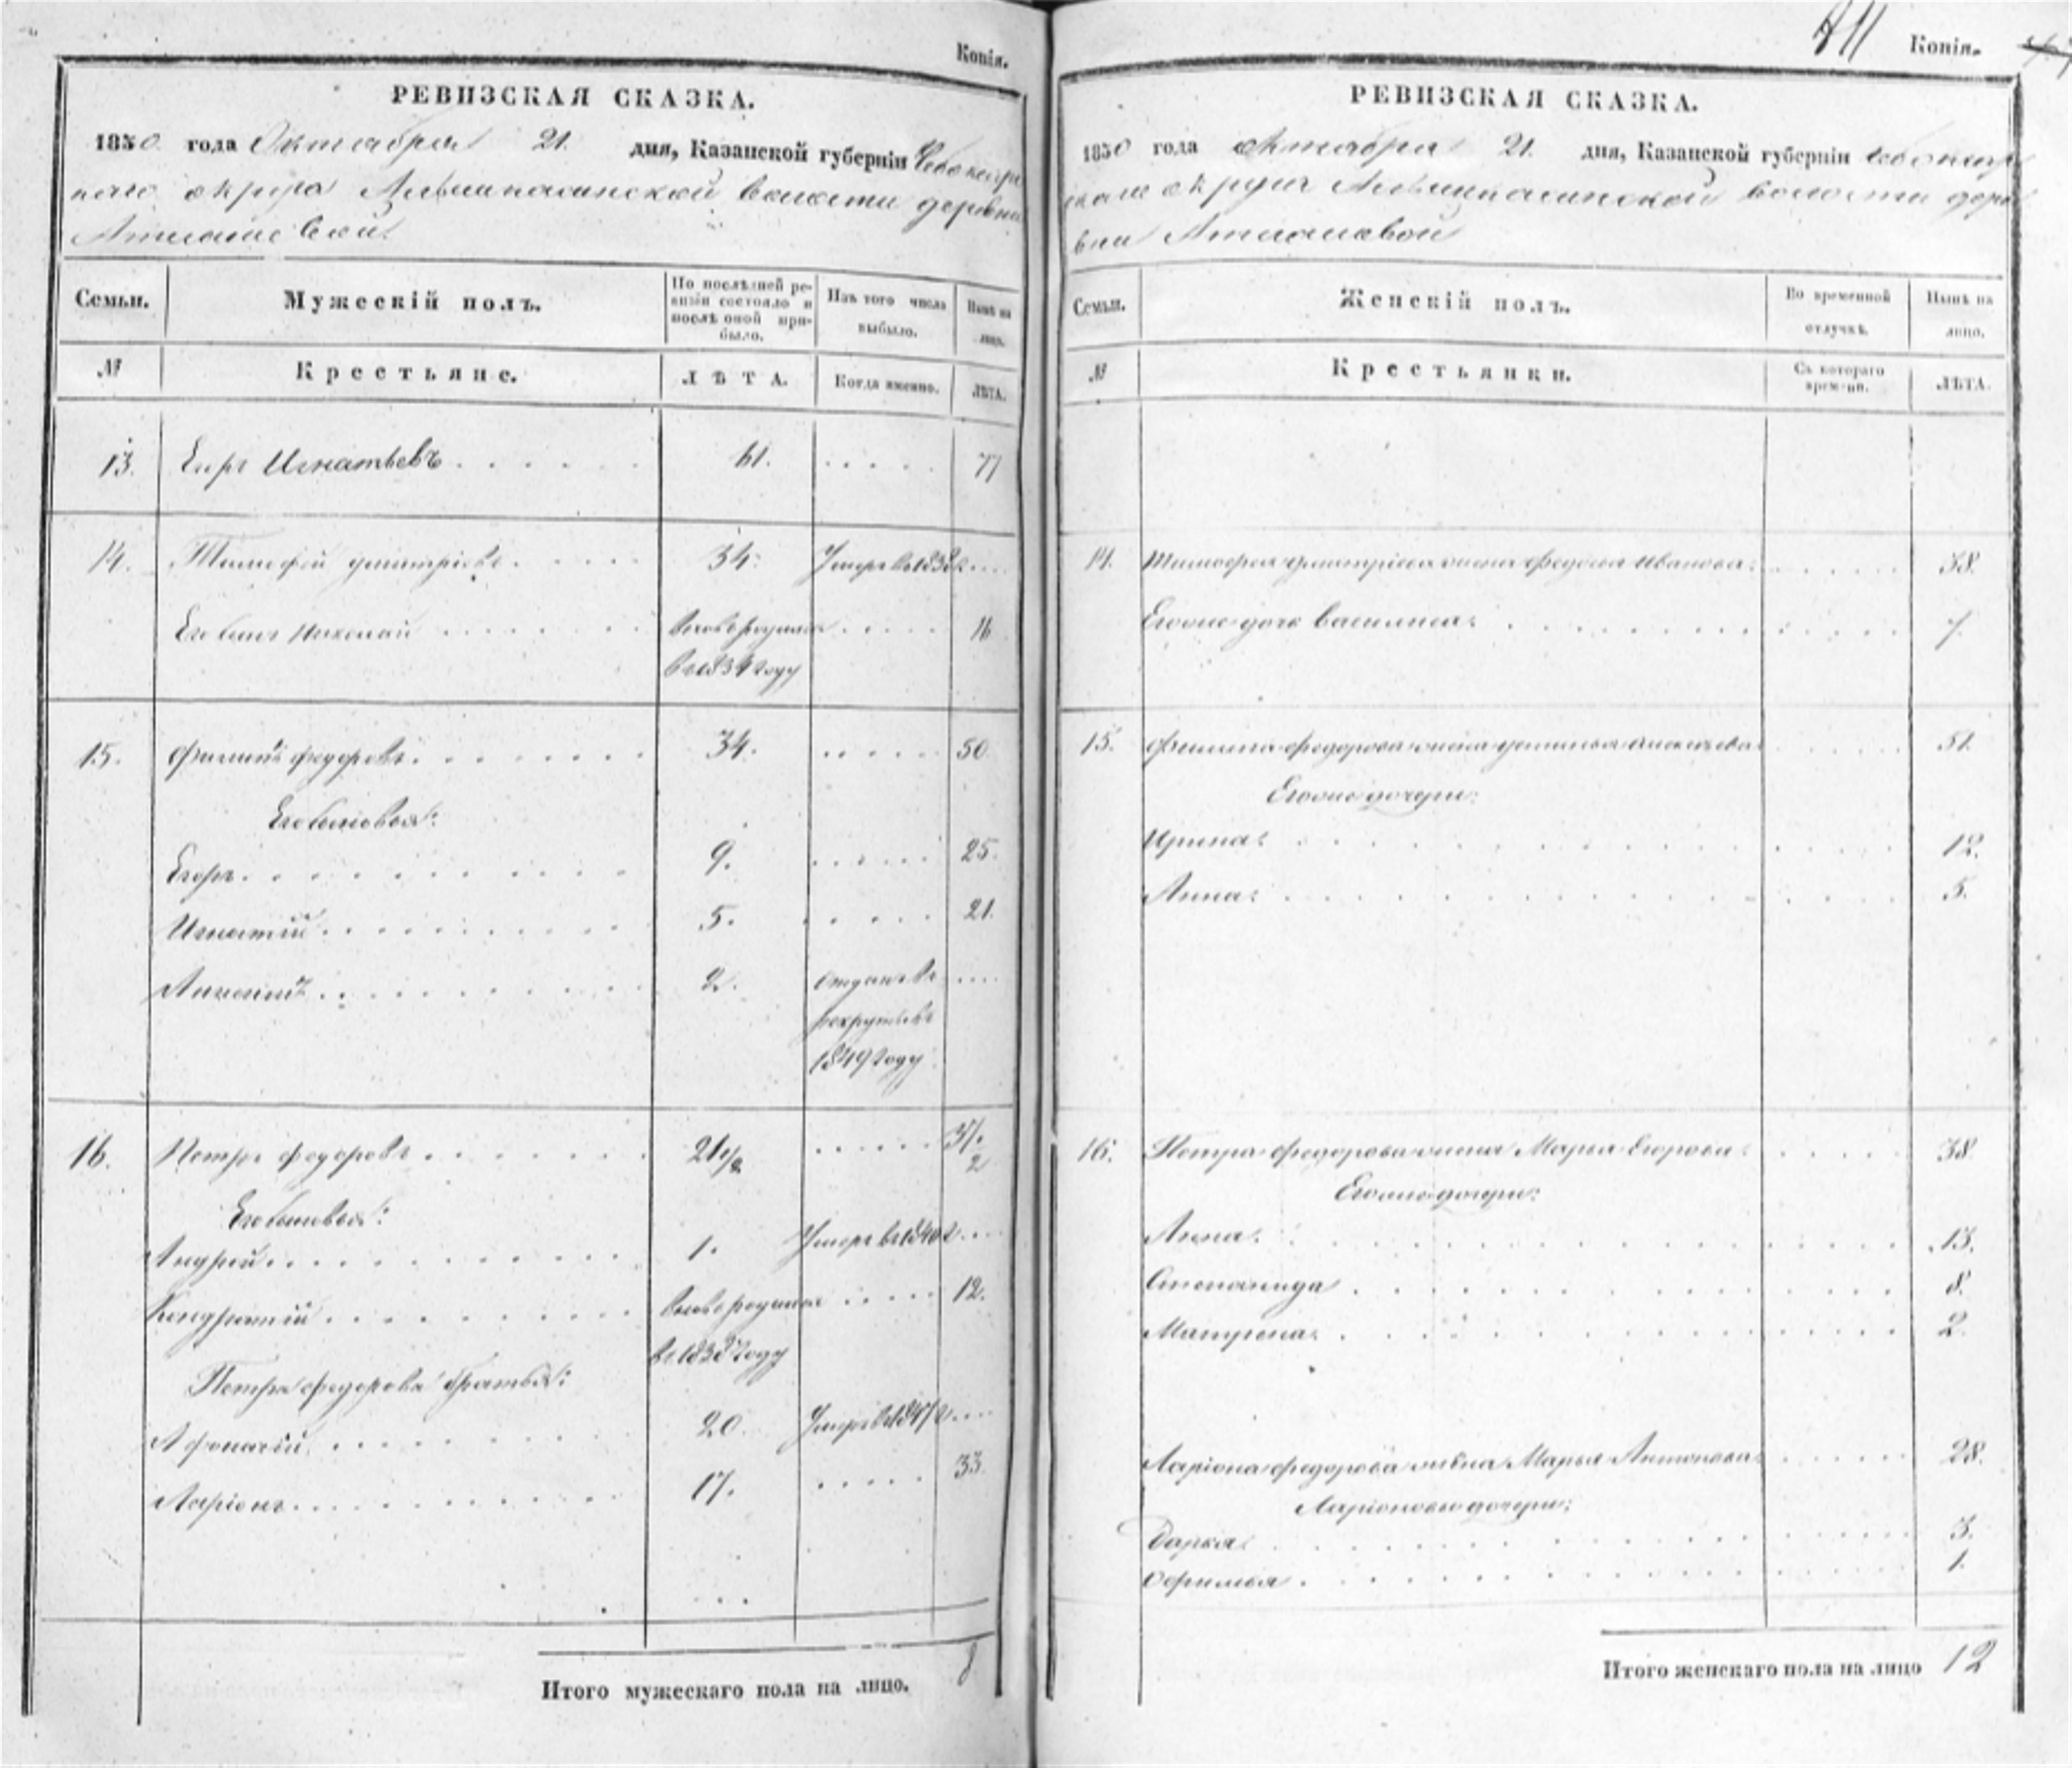 Копія.
РЕВИЗСКАЯ СКАЗКА.
1850 года Октября 21. дня, Казанской губерніи Чебоксар
скаго округа волости деревни
Атлашевской
Семьи. Мужескій полъ. По послѣдней ре-
визіи состояло и
послѣ оной при-
было. Изъ того числа
выбыло. Нынѣ на
лицо.
№ Крестьяне. ЛѢТА. Когда именно. ЛѢТА.
13. Егоръ Игнатьевъ 61. 77
14. Тимофей Дмитріевъ 34. Умеръ въ 1838
Его сынъ Николай вновь родился 16
въ 1834 году
15. Филипъ Федоровъ 34. 50.
Его сыновья:
Егоръ 9. 25.
Игнатій 5. 21.
2. Отданъ въ
рекруты въ
1849 году
16. Петръ Федоровъ 21 1/2 37 1/2
Его сыновья:
Андрей 1. Умеръ въ 1840
Кондратій вновь родился 12.
въ 1838 году
Петра Федорова братья:
Афонасій 20. Умеръ въ 1847
Ларіонъ 17. 33.
Итого мужескаго пола на лицо. 8
Копія.
РЕВИЗСКАЯ СКАЗКА.
1850 года октября 21. дня, Казанской губерніи Чебоксар
скаго округа волости дере
вни Атлашевой
Семьи. Женскій полъ. Во временной
отлучкѣ. Нынѣ на
лицо.
№ Крестьянки. Съ котораго
времени. ЛѢТА.
14. Тимофея Дмитріева жена Федосья Иванова 38.
Егоже дочь Василиса 7.
15. Филипа Федорова жена Устинья 51.
Егоже дочери:
Ирина 12.
Анна 5.
16. Петра Федорова жена Марья Егорова 38
Егоже дочери:
Анна 13.
Степанида 8.
Матрена 2.
Ларіона Федорова жена Марья Антонова 28.
Ларіоновы дочери:
Дарья 3.
Офимья 1.
Итого женскаго пола на лицо 12